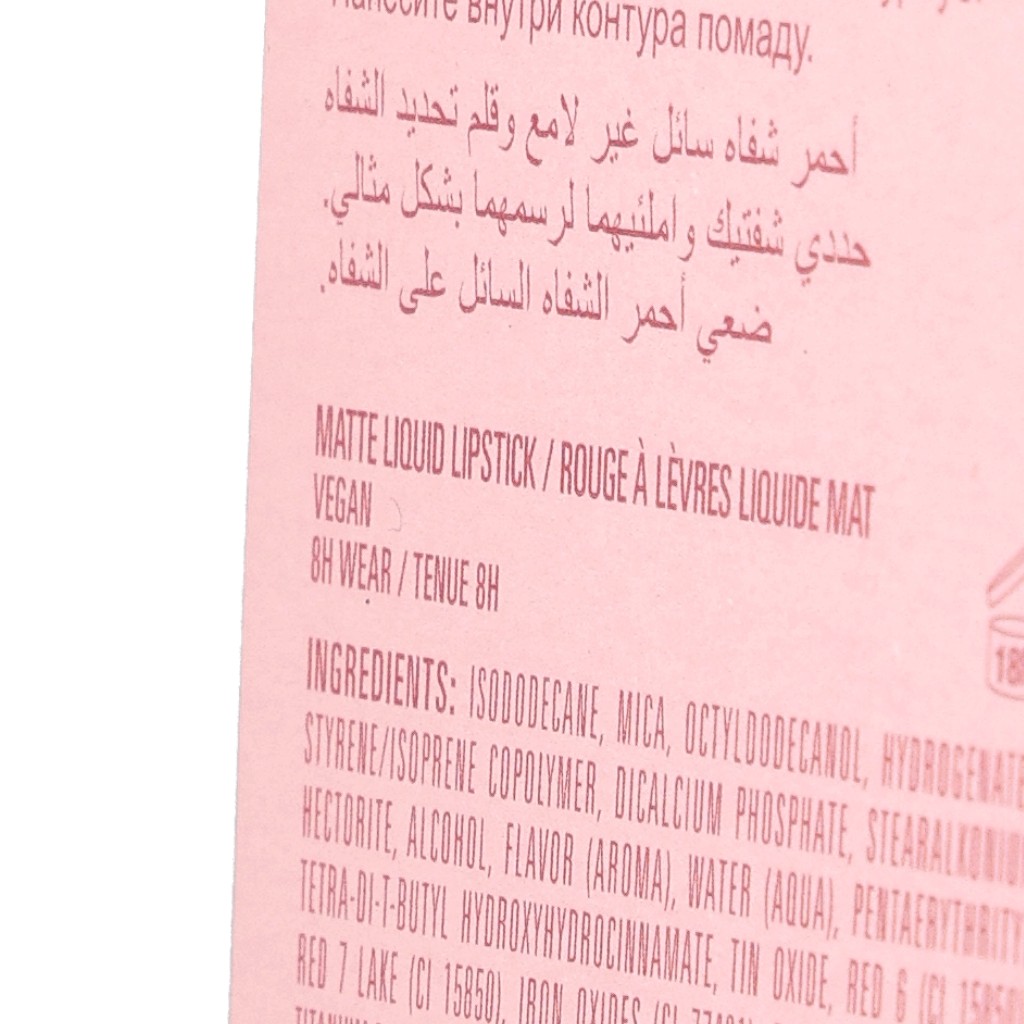 Нанесите внутри контура помаду.
أحمر شفاه سائل غير لامع وقلم تحديد الشفاه
حددي شفتيك واملئيهما لرسمهما بشكل مثالي.
ضعي أحمر الشفاه السائل على الشفاه.
MATTE LIQUID LIPSTICK / ROUGE À LÈVRES LIQUIDE MAT
VEGAN
8H WEAR / TENUE 8H
INGREDIENTS: ISODODECANE, MICA, OCTYLDODECANOL, HYDROGENATE
STYRENE/ISOPRENE COPOLYMER, DICALCIUM PHOSPHATE, STEARALKONIU
HECTORITE, ALCOHOL, FLAVOR (AROMA), WATER (AQUA), PENTAERYTHRITY
TETRA-DI-T-BUTYL HYDROXYHYDROCINNAMATE, TIN OXIDE, RED 6 (CI 15850
RED 7 LAKE (CI 15850), IRON OXIDES (CI
18